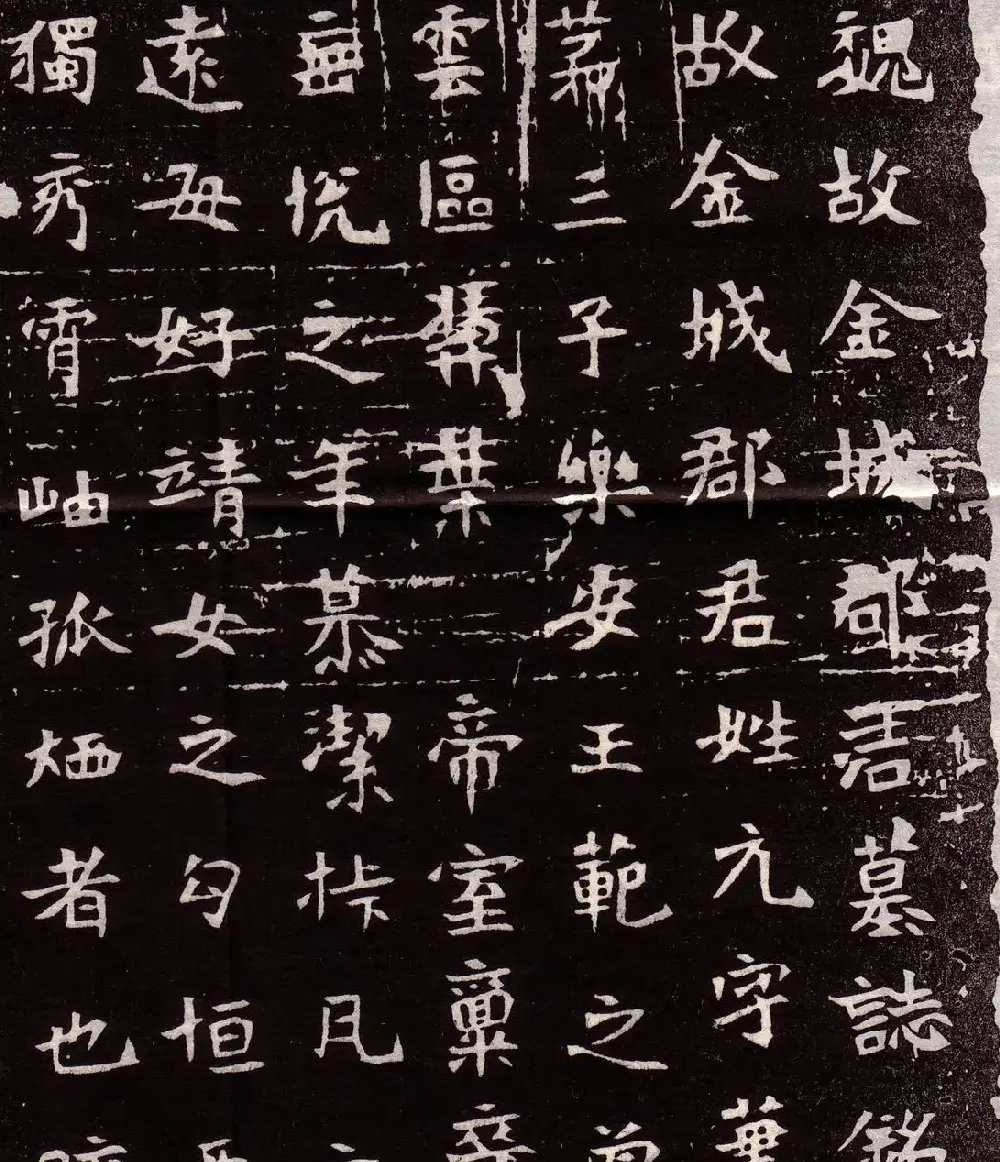 魏故金城郡君墓誌銘
故金城郡君姓元字華
孫三子樂安王範之曾
雲區葉帝室稟
齒悅之年慕潔凡
遠每好靖女之匀恒
獨秀霄岫孤㶻者也